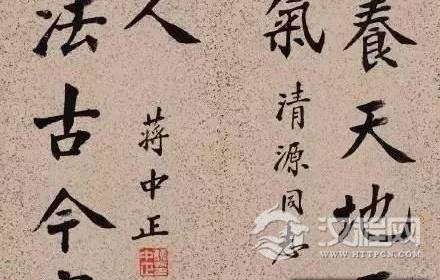 養天地
氣
清源同志
人
蔣中正
法古今
汉程网
HTTPCN.COM